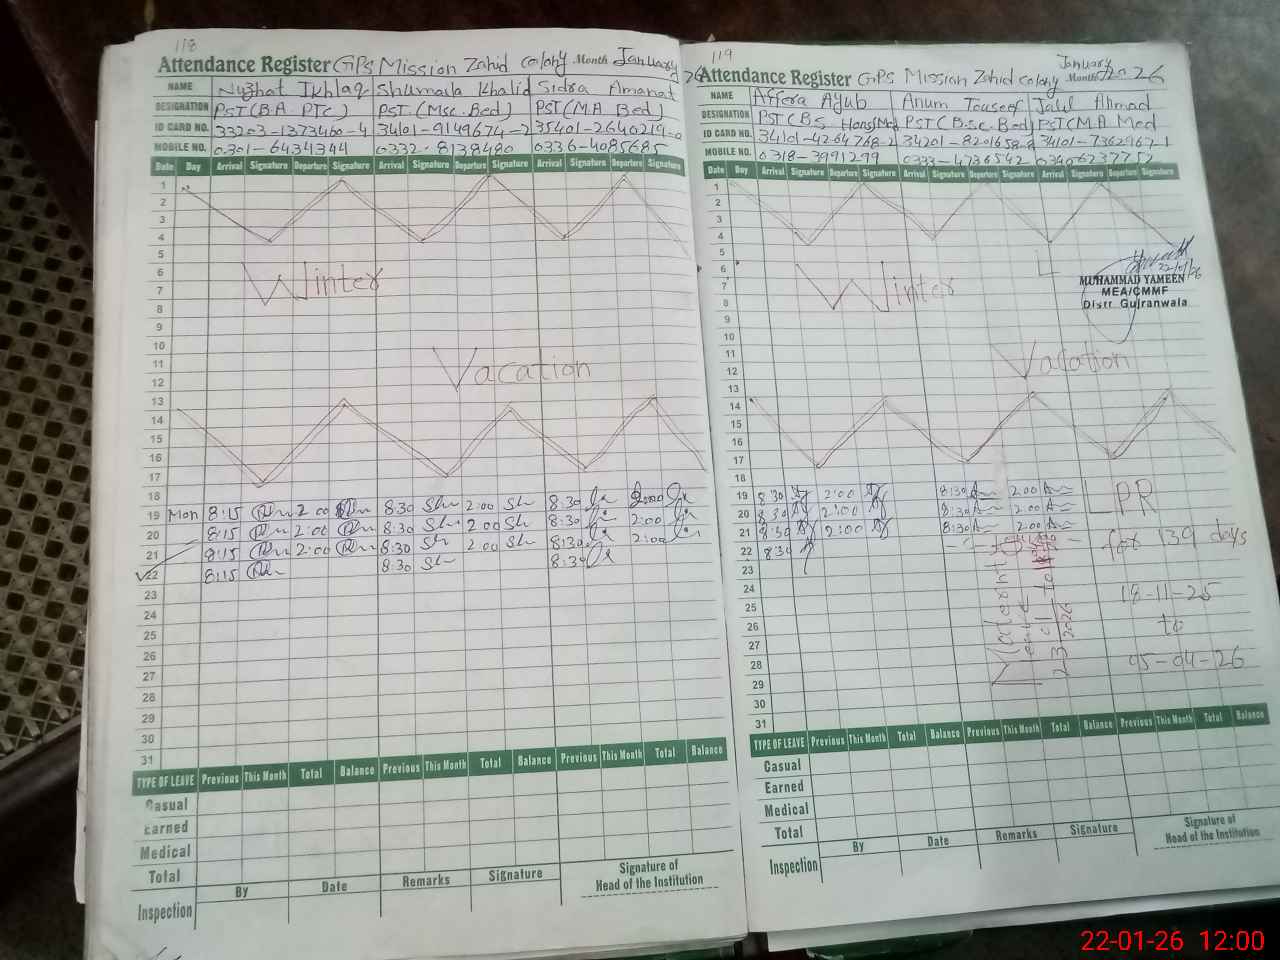 118
Attendance Register GPS Mission Zahid Colony Month January 26
NAME Nuzhat Ikhlaq Shumaila Khalid Sidra Amanat
DESIGNATION PST (B.A PTC) PST (Msc. Bed) PST (M.A Bed)
ID CARD NO. 33203-1373460-4 34101-9149674-2 35401-2640219-0
MOBILE NO. 0301-6434344 0332-8138480 0336-4085685
Date Day Arrival Signature Departure Signature Arrival Signature Departure Signature Arrival Signature Departure Signature
1
2
3
4
5
6
7
Winter
8
9
10
11
Vacation
12
13
14
15
16
17
18
19 Mon 8:15 2:00 8:30 2:00 8:30 2:00
20 8:15 2:00 8:30 2:00 8:30 2:00
21 8:15 2:00 8:30 2:00 8:30 2:00
22 8:15 8:30 8:30
23
24
25
26
27
28
29
30
31
TYPE OF LEAVE Previous This Month Total Balance Previous This Month Total Balance Previous This Month Total Balance
Casual
Earned
Medical
Total
By Date Remarks Signature
Signature of
Head of the Institution
Inspection
119
Attendance Register GPS Mission Zahid Colony Month January 26
NAME Affera Ayub Anum Touseef Jalil Ahmad
DESIGNATION PST (BS. Hons) PST (B.sc. Bed) PST (M.A Med
ID CARD NO. 34101-4264768-2 34201-8201658-8 34101-7362967-1
MOBILE NO. 0318-3991299 0333-4736542 03406237752
Date Day Arrival Signature Departure Signature Arrival Signature Departure Signature Arrival Signature Departure Signature
1
2
3
4
5
6
7
Winter
22/01/26
MUHAMMAD YAMEEN
MEA/CMMF
Distt Gujranwala
8
9
10
11
Vacation
12
13
14
15
16
17
19 8:30 2:00 8:30 2:00 LPR
20 8:30 2:00 8:30 2:00
21 8:30 2:00 8:30 2:00 for 139 days
22 8:30
23
24
25
26
27
28
29
30
31
18-11-25
to
05-04-26
TYPE OF LEAVE Previous This Month Total Balance Previous This Month Total Balance Previous This Month Total Balance
Casual
Earned
Medical
Total
By Date Remarks Signature
Signature of
Head of the Institution
Inspection
22-01-26 12:00